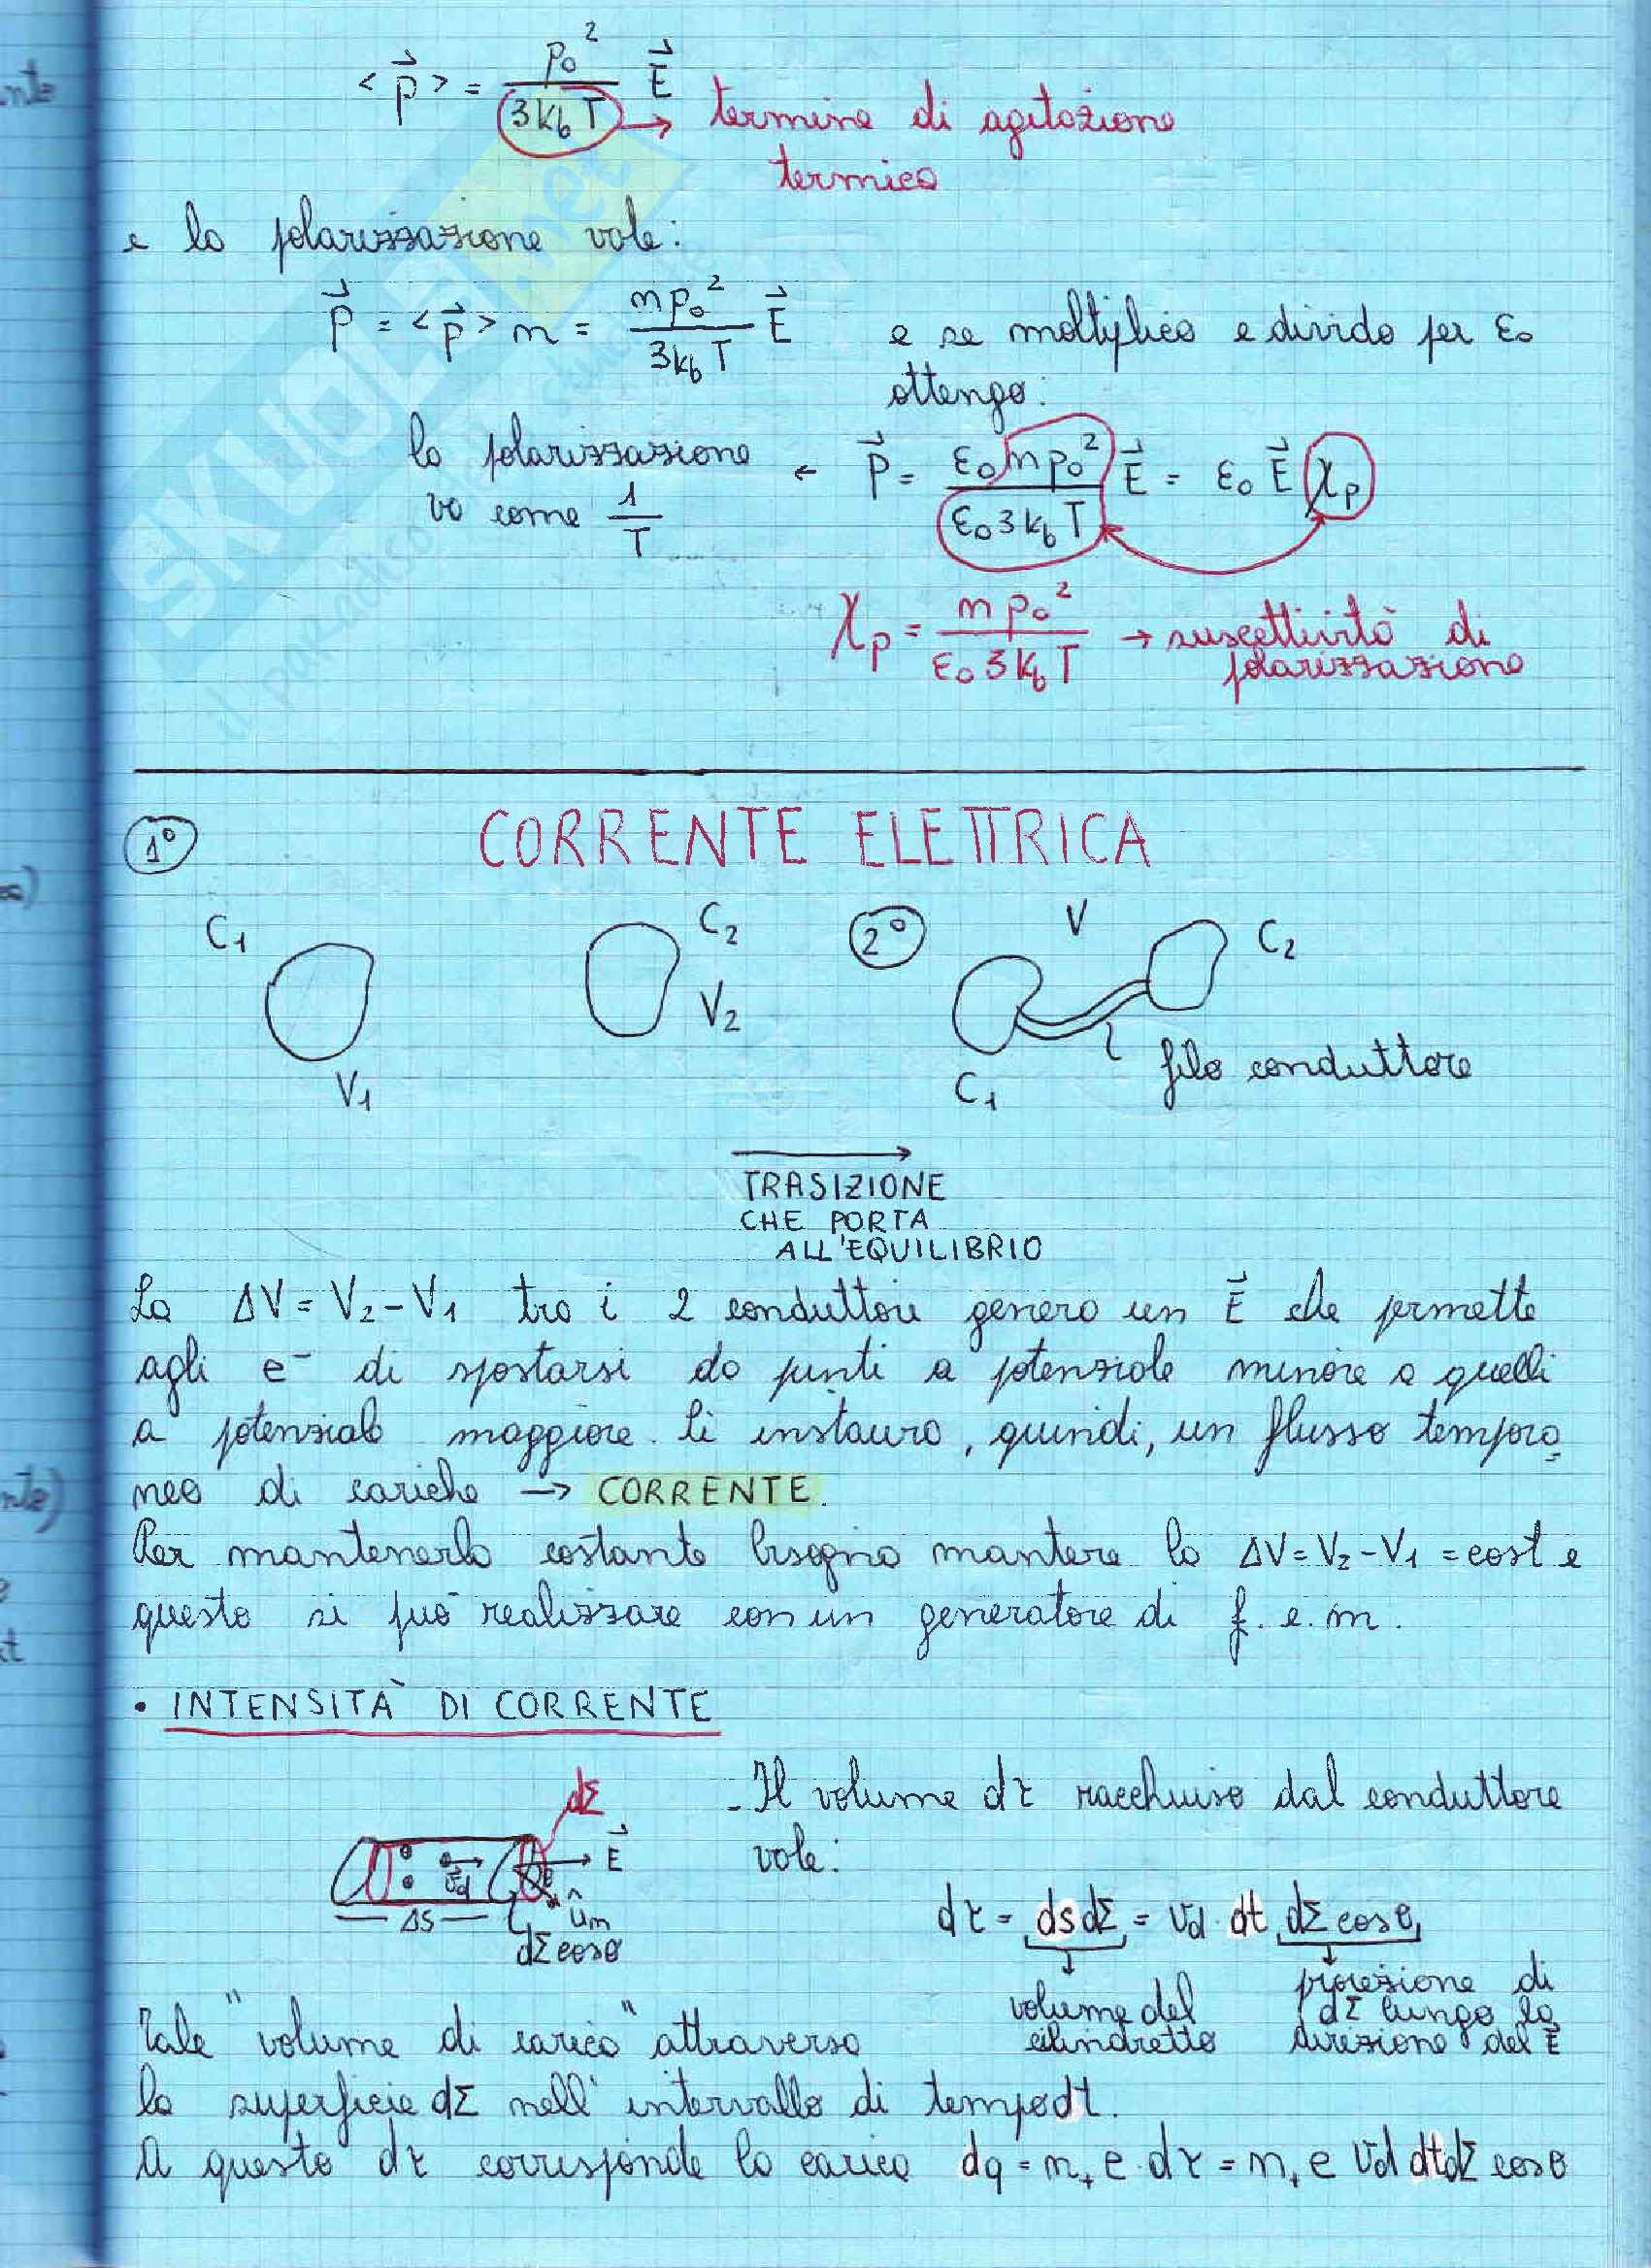 <p⃗> = p₀² / 3k_bT E⃗ → termine di agitazione
termica
e la polarizzazione vale:
P⃗ = <p⃗> n = np₀² / 3k_bT E⃗ e se moltiplico e divido per ε₀
ottengo:
la polarizzazione ← P⃗ = ε₀np₀² / ε₀3k_bT E⃗ = ε₀ E⃗ χ_p
va come 1/T
χ_p = np₀² / ε₀3k_bT → suscettività di
polarizzazione
1° CORRENTE ELETTRICA
C₁ C₂ 2° V C₂
V₂
V₁ C₁ filo conduttore
TRASIZIONE
CHE PORTA
ALL'EQUILIBRIO
La ΔV = V₂ - V₁ tra i 2 conduttori genera un E⃗ che permette
agli e⁻ di spostarsi da punti a potenziale minore a quelli
a potenziale maggiore. Si instaura, quindi, un flusso tempora
neo di cariche → CORRENTE.
Per mantenerla costante bisogna mantere la ΔV = V₂ - V₁ = cost e
questo si può realizzare con un generatore di f.e.m.
• INTENSITÀ DI CORRENTE
dΣ - Il volume dτ racchiuso dal conduttore
E⃗ vale:
v⃗d
ΔS û_n dτ = dsdΣ = vd · dt dΣ cosθ
dΣ cosθ
volume del proiezione di
cilindretto dΣ lungo la
direzione del E⃗
Tale "volume di carica" attraversa
la superficie dΣ nell'intervallo di tempo dt.
A questo dτ corrisponde la carica dq = n₊ e · dτ = n₊ e vd dtdΣ cosθ
SKUOLA.net